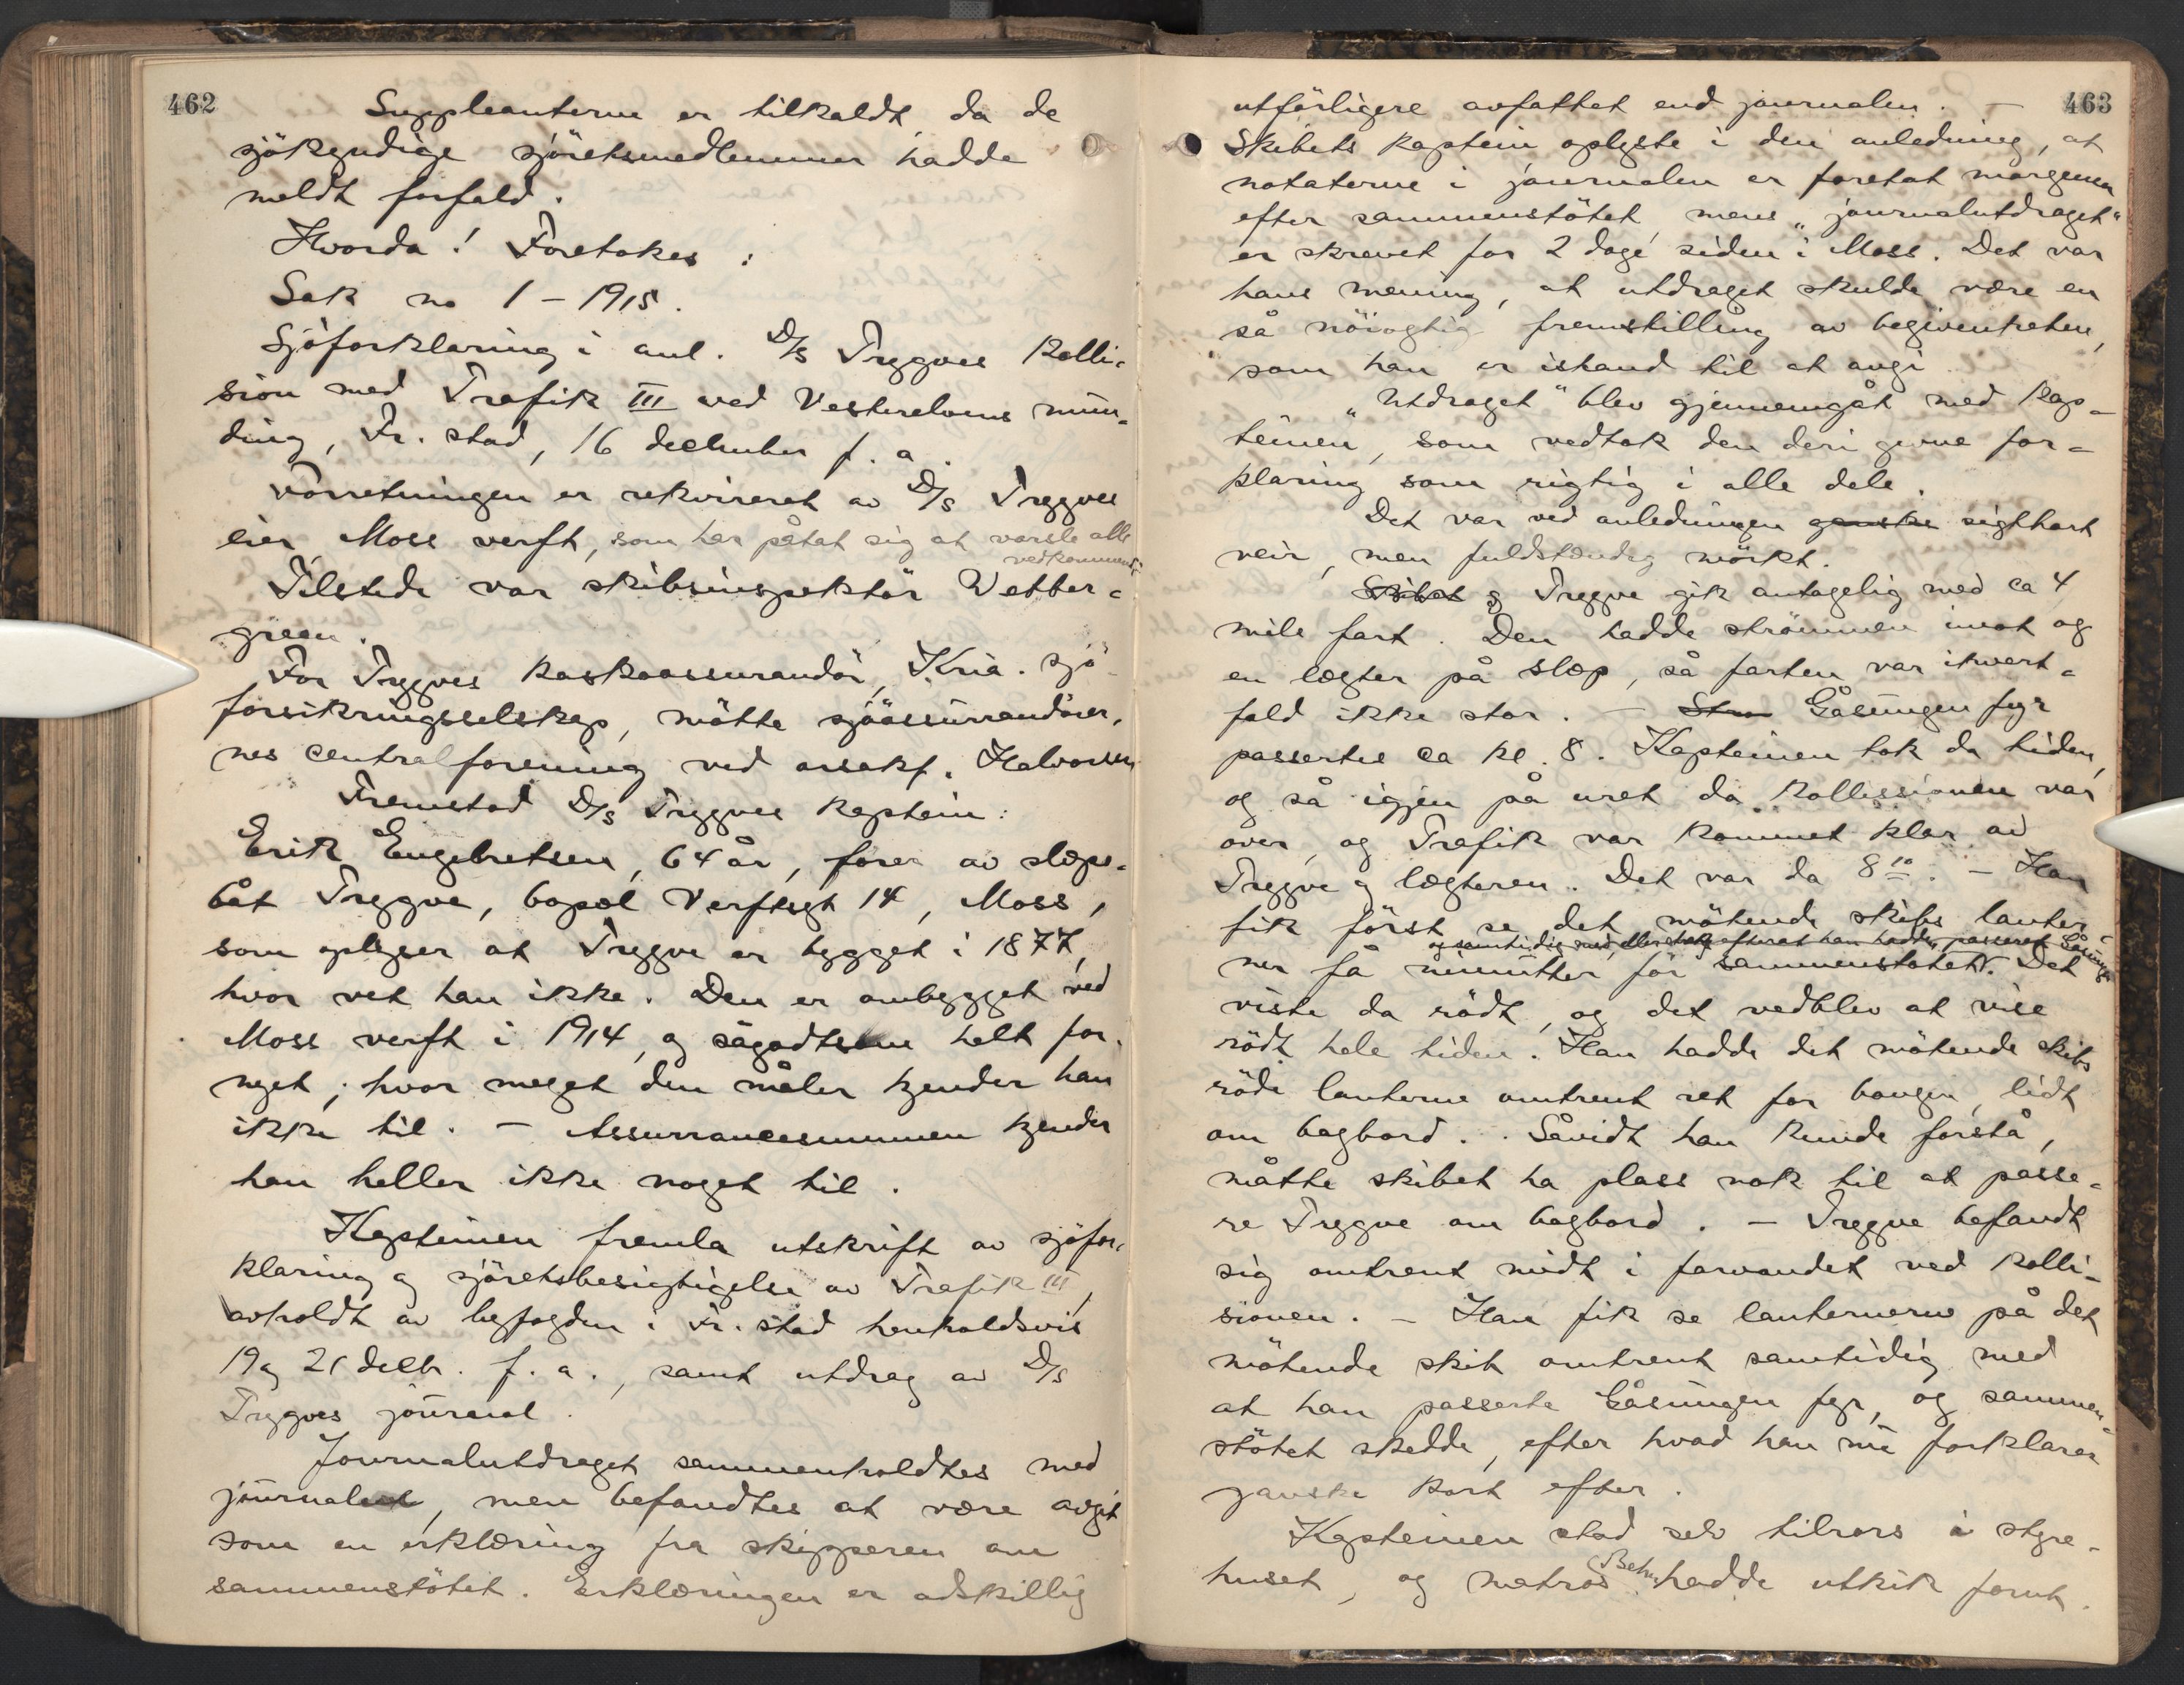 462
Suppleanterne er tilkaldt, da de
sjökyndige sjöretsmedlemmer hadde
meldt forfald.
Hvorda! Foretokes:
Sak no 1 – 1915.
Sjöforklaring i anl. D/S Trygves Kolli-
sion med Trafik III ved Vesterelvens mun-
ding, Fr. stad, 16 december f. a.
Forretningen er rekvireret av D/S Trygves
eier, Moss verft, som har påtat sig at varsle alle
vedkommende
Tilstede var skibsinspektör Wetter-
green.
For Trygves kaskoassurandör, Kria. sjö-
forsikringsselskap, mötte sjöassurandörer-
nes centralforening ved orsakf. Halvorsen
Fremstod D/S Trygves kaptein:
Erik Engebretsen, 64 år, förer av slæpe-
båt Trygve, bopæl Verftsgt 14, Moss,
som oplyser at Trygve er bygget i 1877,
hvor vet han ikke. Den er ombygget ved
Moss verft i 1914, og sågodtsom helt for-
nyet; hvor meget den måler kjender han
ikke til. – Assurrancesummen kjender
han heller ikke noget til.
Kapteinen fremla utskrift av sjöfor-
klaring og sjöretsbesigtigelse av Trafik III,
avholdt av byfogden i Fr. stad henholdsvis
19 og 21 decbr. f. a., samt utdrag av D/S
Trygves journal.
Journalutdraget sammenholdtes med
journalen, men befandtes at være avgit
som en erklæring fra skipperen om
sammenstötet. Erklæringen er adskillig
463
utförligere avfattet end journalen. –
Skibets kaptein oplyste i den anledning, at
notaterne i journalen er foretat morgenen
efter sammenstötet, mens "journalutdraget"
er skrevet for 2 dage siden i Moss. Det var
hans mening, at utdraget skulde være en
så nöiagtig fremstilling av begivenheten,
som han er istand til at avgi
"Utdraget" blev gjennemgåt med kap-
teinen, som vedtok den deri givne for-
klaring som rigtig i alle dele.
Det var ved anledningen ganske sigtbart
veir, men fuldstændig mörkt.
Skibet og Trygve gik antagelig med ca 4
mile fart. Den hadde strömmen imot og
en lægter på slæp, så farten var ikvert-
fald ikke stor. – Gåsungen fyr
passertes ca kl. 8. Kapteinen tok da tiden,
og så igjen på uret da kollissionen var
over, og Trafik var kommet klar av
Trygve og lægteren. Det var da 8 10. – Han
fik först se det mötende skibs lanter-
og samtidig med, eller straks efterat han hadde passeret Gåsungen
ner få minutter för sammenstötet. Det
viste da rödt, og det vedblev at vise
rödt hele tiden. Han hadde det mötende skibs
röde lanterne omtrent ret for baugen, lidt
om bagbord. Såvidt han kunde forstå,
måtte skibet ha plass nok til at passe-
re Trygve om bagbord. – Trygve befandt
sig omtrent midt i farvandet ved kolli-
sionen. – Han fik se lanternerne på det
mötende skib omtrent samtidig med
at han passerte Gåsungen fyr, og sammen-
stötet skedde, efter hvad han nu forklarer
ganske kort efter.
Kapteinen stod selv tilrors i styre-
huset, og matros Behn hadde utkik forut.